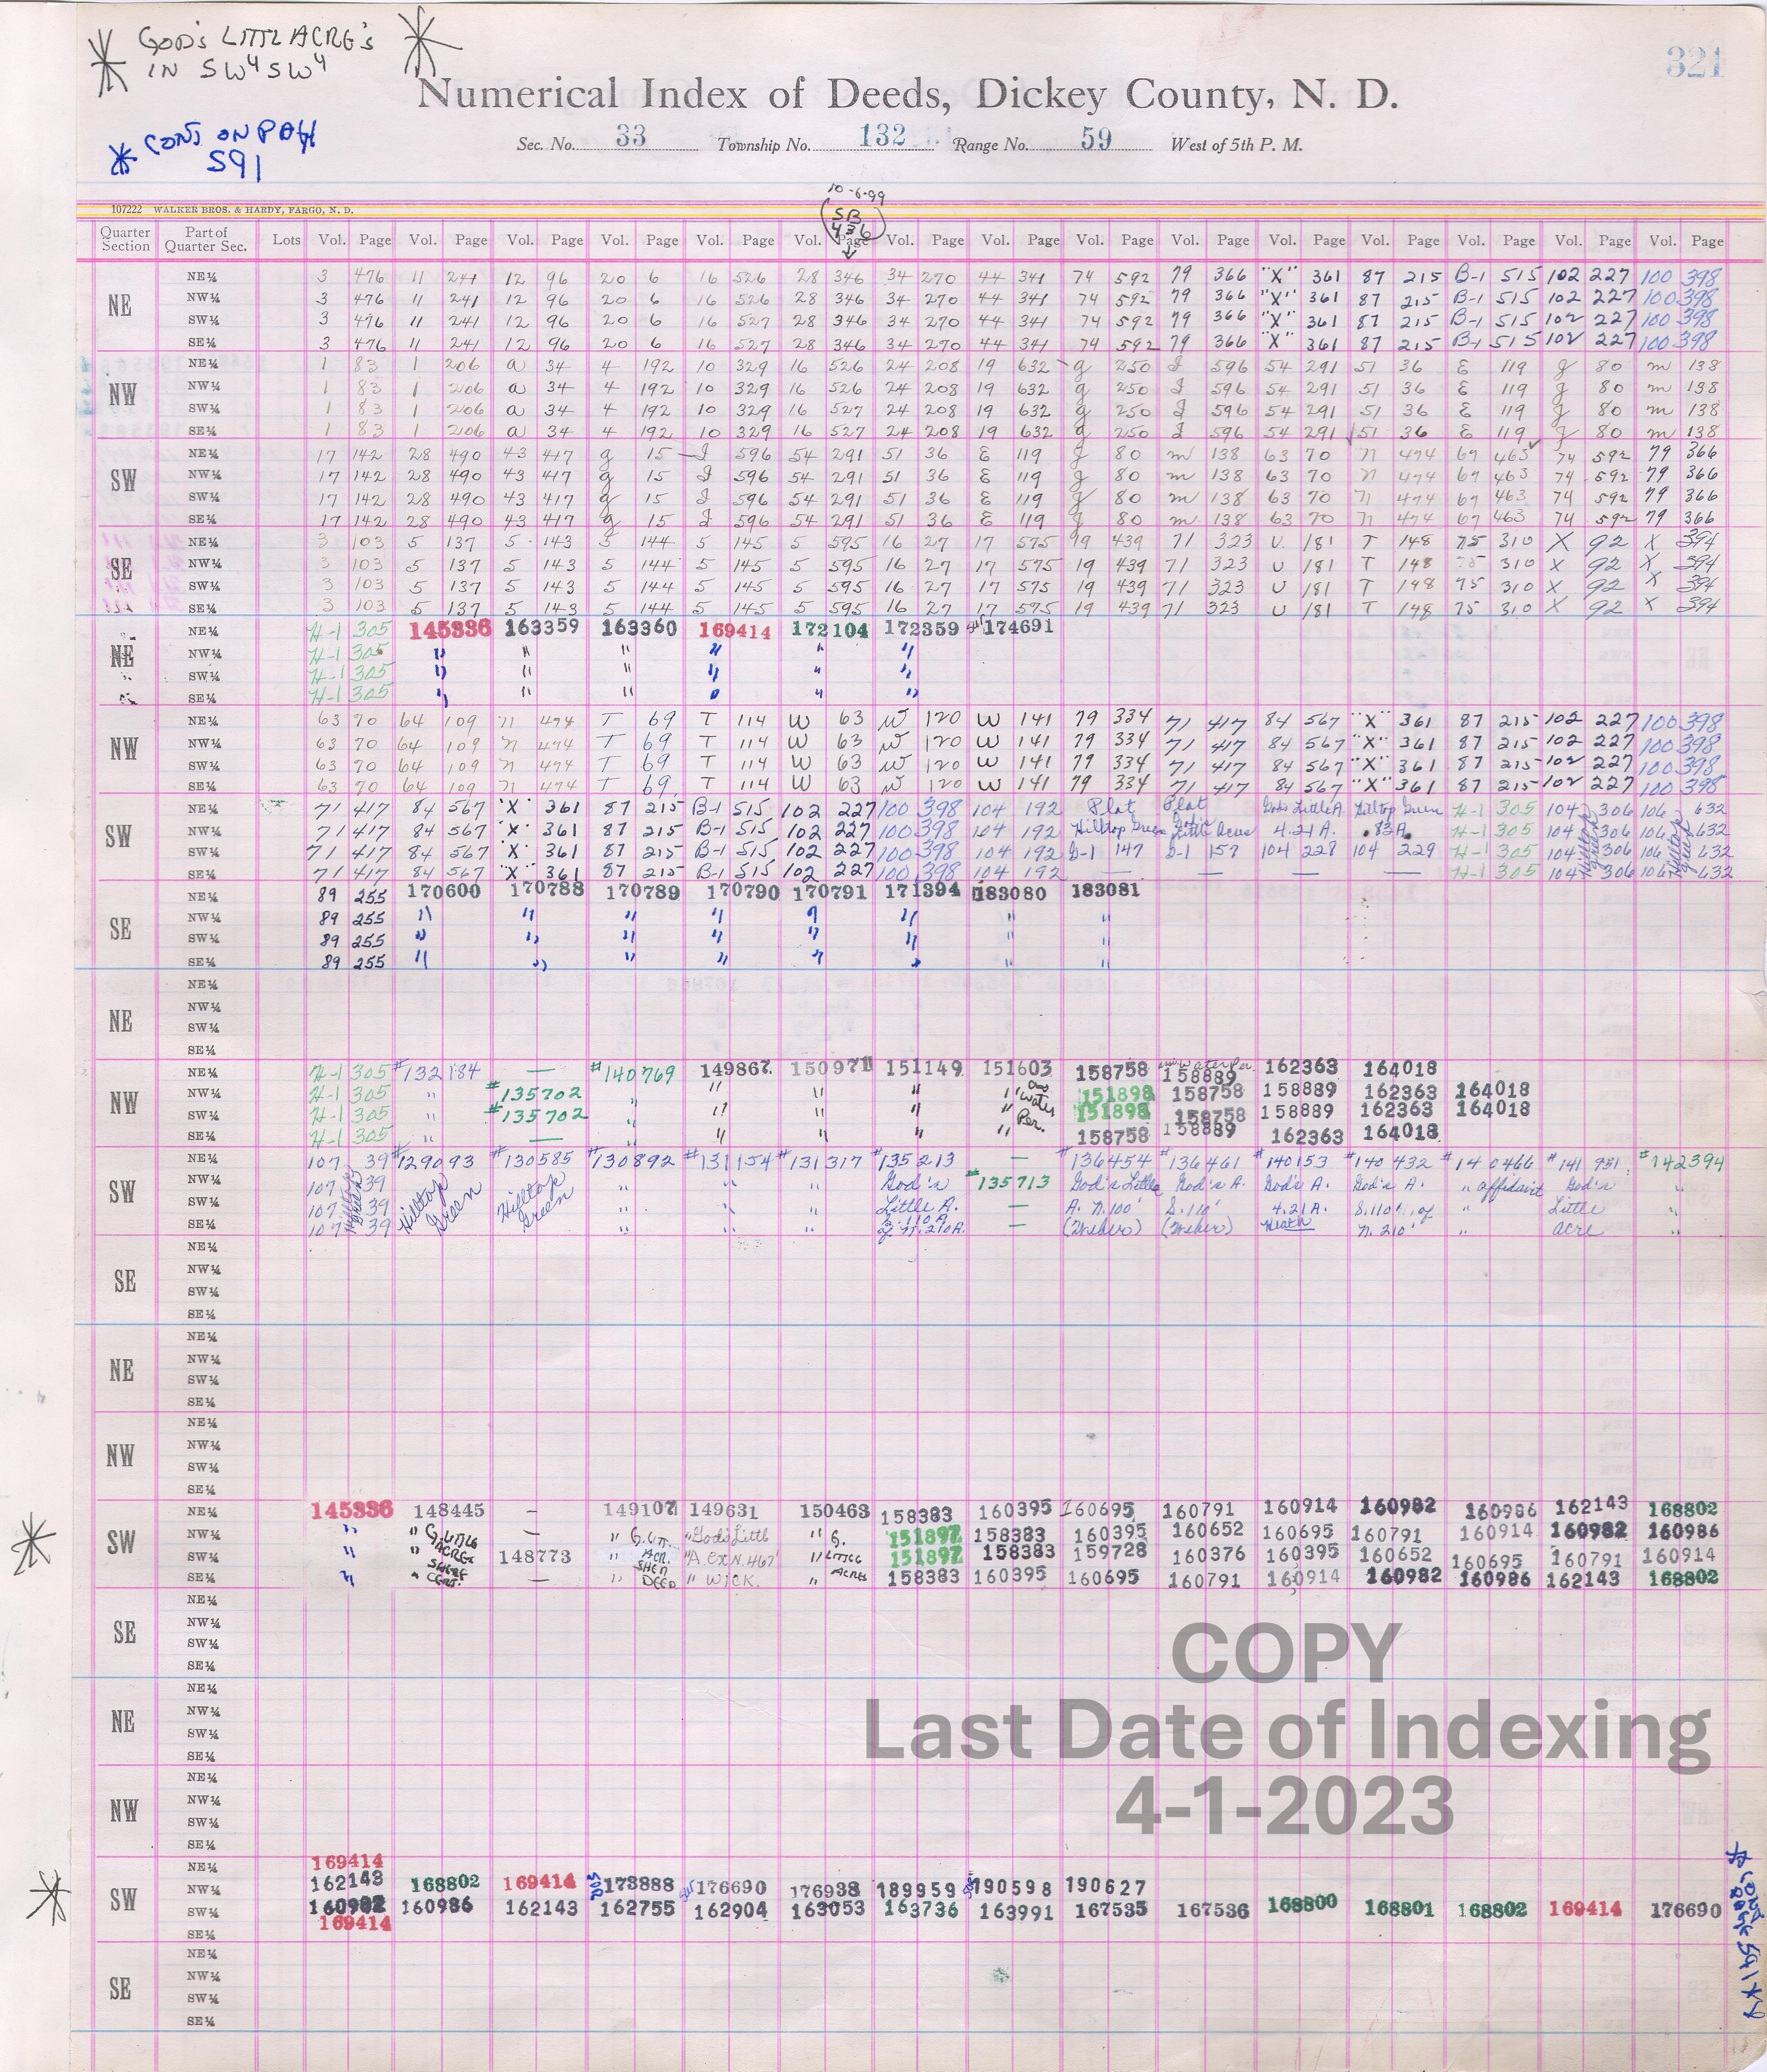 GOD'S LITTL ACRE'S
IN SW4 SW4
321
Numerical Index of Deeds, Dickey County, N. D.
CONT ON PAGE
591
Sec. No. 33 Township No. 132 Range No. 59 West of 5th P. M.
10-6-99
SB
436
107222 WALKER BROS. & HARDY, FARGO, N. D.
Quarter Section Part of Quarter Sec. Lots Vol. Page Vol. Page Vol. Page Vol. Page Vol. Page Vol. Page Vol. Page Vol. Page Vol. Page Vol. Page Vol. Page Vol. Page Vol. Page Vol. Page Vol. Page
NE
NE¼ 3 476 11 241 12 96 20 6 16 526 28 346 34 270 44 341 74 592 79 366 "X" 361 87 215 B-1 515 102 227 100 398
NW¼ 3 476 11 241 12 96 20 6 16 526 28 346 34 270 44 341 74 592 79 366 "X" 361 87 215 B-1 515 102 227 100 398
SW¼ 3 476 11 241 12 96 20 6 16 527 28 346 34 270 44 341 74 592 79 366 "X" 361 87 215 B-1 515 102 227 100 398
SE¼ 3 476 11 241 12 96 20 6 16 527 28 346 34 270 44 341 74 592 79 366 "X" 361 87 215 B-1 515 102 227 100 398
NW
NE¼ 1 83 1 206 a 34 4 192 10 329 16 526 24 208 19 632 g 250 I 596 54 291 51 36 E 119 J 80 m 138
NW¼ 1 83 1 206 a 34 4 192 10 329 16 526 24 208 19 632 g 250 I 596 54 291 51 36 E 119 J 80 m 138
SW¼ 1 83 1 206 a 34 4 192 10 329 16 527 24 208 19 632 g 250 I 596 54 291 51 36 E 119 J 80 m 138
SE¼ 1 83 1 206 a 34 4 192 10 329 16 527 24 208 19 632 g 250 I 596 54 291 51 36 E 119 J 80 m 138
SW
NE¼ 17 142 28 490 43 417 g 15 I 596 54 291 51 36 E 119 J 80 m 138 63 70 n 474 67 463 74 592 79 366
NW¼ 17 142 28 490 43 417 g 15 I 596 54 291 51 36 E 119 J 80 m 138 63 70 n 474 67 463 74 592 79 366
SW¼ 17 142 28 490 43 417 g 15 I 596 54 291 51 36 E 119 J 80 m 138 63 70 n 474 67 463 74 592 79 366
SE¼ 17 142 28 490 43 417 g 15 I 596 54 291 51 36 E 119 J 80 m 138 63 70 n 474 67 463 74 592 79 366
SE
NE¼ 3 103 5 137 5 143 5 144 5 145 5 595 16 27 17 575 19 439 71 323 U 181 T 148 75 310 X 92 X 394
NW¼ 3 103 5 137 5 143 5 144 5 145 5 595 16 27 17 575 19 439 71 323 U 181 T 148 75 310 X 92 X 394
SW¼ 3 103 5 137 5 143 5 144 5 145 5 595 16 27 17 575 19 439 71 323 U 181 T 148 75 310 X 92 X 394
SE¼ 3 103 5 137 5 143 5 144 5 145 5 595 16 27 17 575 19 439 71 323 U 181 T 148 75 310 X 92 X 394
NE
NE¼ H-1 305 145336 163359 163360 169414 172104 172359 174691
NW¼ H-1 305 " " " " " "
SW¼ H-1 305 " " " " " "
SE¼ H-1 305 " " " " " "
NW
NE¼ 63 70 64 109 n 474 T 69 T 114 W 63 W 120 W 141 79 334 71 417 84 567 "X" 361 87 215 102 227 100 398
NW¼ 63 70 64 109 n 474 T 69 T 114 W 63 W 120 W 141 79 334 71 417 84 567 "X" 361 87 215 102 227 100 398
SW¼ 63 70 64 109 n 474 T 69 T 114 W 63 W 120 W 141 79 334 71 417 84 567 "X" 361 87 215 102 227 100 398
SE¼ 63 70 64 109 n 474 T 69 T 114 W 63 W 120 W 141 79 334 71 417 84 567 "X" 361 87 215 102 227 100 398
SW
NE¼ 71 417 84 567 "X" 361 87 215 B-1 515 102 227 100 398 104 192 Plat Plat God's Little A. Hilltop Green H-1 305 104 306 106 632
NW¼ 71 417 84 567 "X" 361 87 215 B-1 515 102 227 100 398 104 192 Hilltop Green God's Little Acres 4.21 A. .83 A. H-1 305 104 306 106 632
SW¼ 71 417 84 567 "X" 361 87 215 B-1 515 102 227 100 398 104 192 D-1 147 D-1 157 104 228 104 229 H-1 305 104 306 106 632
SE¼ 71 417 84 567 "X" 361 87 215 B-1 515 102 227 100 398 104 192 — — — — H-1 305 104 306 106 632
Hilltop Green Hilltop Green
SE
NE¼ 89 255 170600 170788 170789 170790 170791 171394 183080 183081
NW¼ 89 255 " " " " " " " "
SW¼ 89 255 " " " " " " " "
SE¼ 89 255 " " " " " " " "
NE
NE¼
NW¼
SW¼
SE¼
NW
NE¼ H-1 305 #132184 — #140769 149867 150971 151149 151603 158758 Water Per. 158889 162363 164018
NW¼ H-1 305 " #135702 " " " " " and 151898 158758 158889 162363 164018
SW¼ H-1 305 " #135702 " " " " " water 151898 158758 158889 162363 164018
SE¼ H-1 305 " — " " " " " Per. 158758 158889 162363 164018
SW
NE¼ 107 39 #129093 #130585 #130892 #131154 #131317 #135213 — #136454 #136461 #140153 #140432 #140466 #141951 #142394
NW¼ 107 39 Hilltop Hilltop " " " God's #135713 God's Little God's A. God's A. God's A. " affidavit God's "
SW¼ 107 39 Green Green " " " Little A. — A. N. 100' S. 110' 4.21 A. S. 110', of " Little "
SE¼ 107 39 " " " — (Weber) (Weber) Heath N. 210' " acre "
Hilltop Green
SE
NE¼
NW¼
SW¼
SE¼
NE
NE¼
NW¼
SW¼
SE¼
NW
NE¼
NW¼
SW¼
SE¼
SW
NE¼ 145336 148445 — 149107 149631 150463 158383 160395 160695 160791 160914 160982 160986 162143 168802
NW¼ " " G. LITTLE — " G. LITT. "God's Little " G. 151897 158383 160395 160652 160695 160791 160914 160982 160986
SW¼ " " ACRES 148773 " ACR. "A. EX N. 467' " LITTLE 151897 158383 159728 160376 160395 160652 160695 160791 160914
SE¼ " " CERT. — " SHER DEED " WICK. " ACRES 158383 160395 160695 160791 160914 160982 160986 162143 168802
SE
NE¼
NW¼
SW¼
SE¼
COPY
Last Date of Indexing
4-1-2023
NE
NE¼
NW¼
SW¼
SE¼
NW
NE¼
NW¼
SW¼
SE¼
SW
NE¼ 169414
NW¼ 162143 168802 169414 173888 176690 176938 189959 190598 190627
SW¼ 160982 160986 162143 162755 162904 163053 163736 163991 167535 167536 168800 168801 168802 169414 176690
SE¼ 169414
SE
NE¼
NW¼
SW¼
SE¼